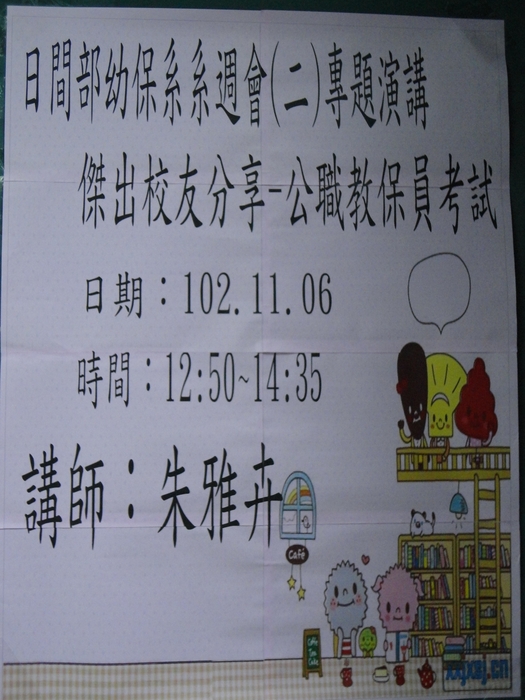 日間部幼保系系週會(二)專題演講
傑出校友分享-公職教保員考試
日期：102.11.06
時間：12:50~14:35
講師：朱雅卉
Café